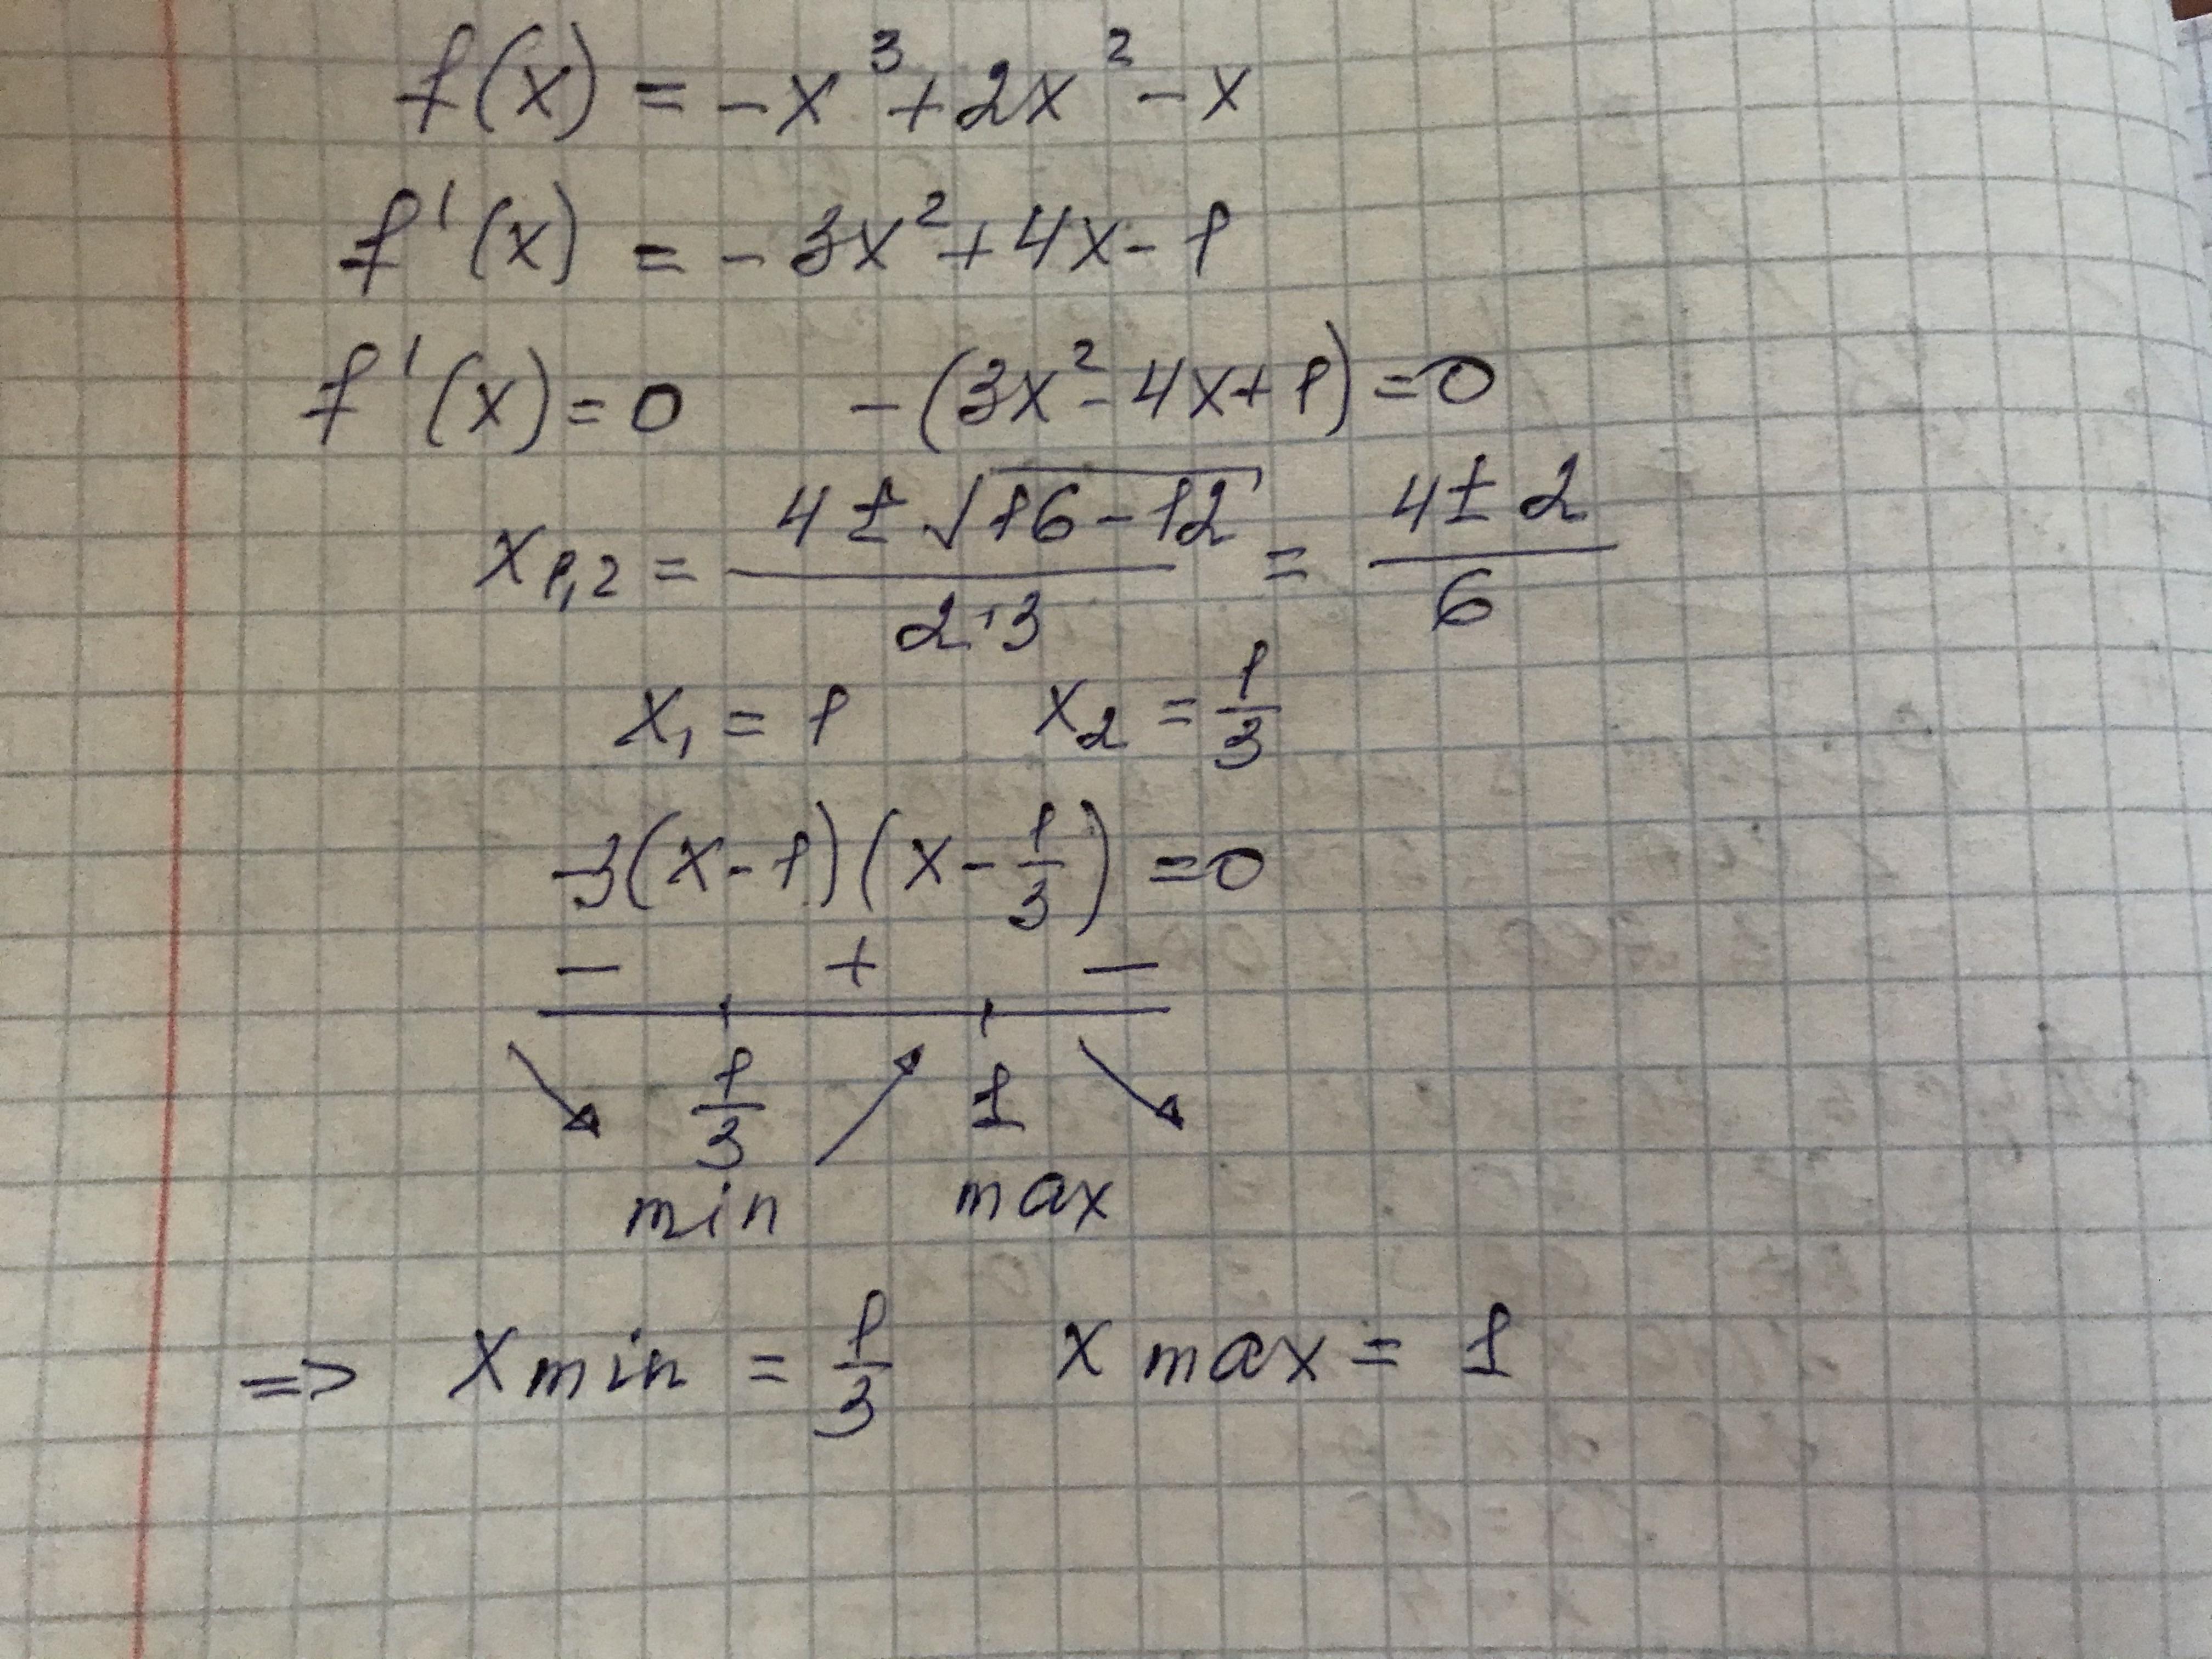 f(x) = -x³+2x²-x
f'(x) = -3x²+4x-1
f'(x)=0 -(3x²-4x+1)=0
x₁,₂ = (4±√(16-12))/(2·3) = (4±2)/6
x₁ = 1 x₂ = 1/3
-3(x-1)(x-1/3)=0
- + -
1/3 1
min max
=> x min = 1/3 x max = 1